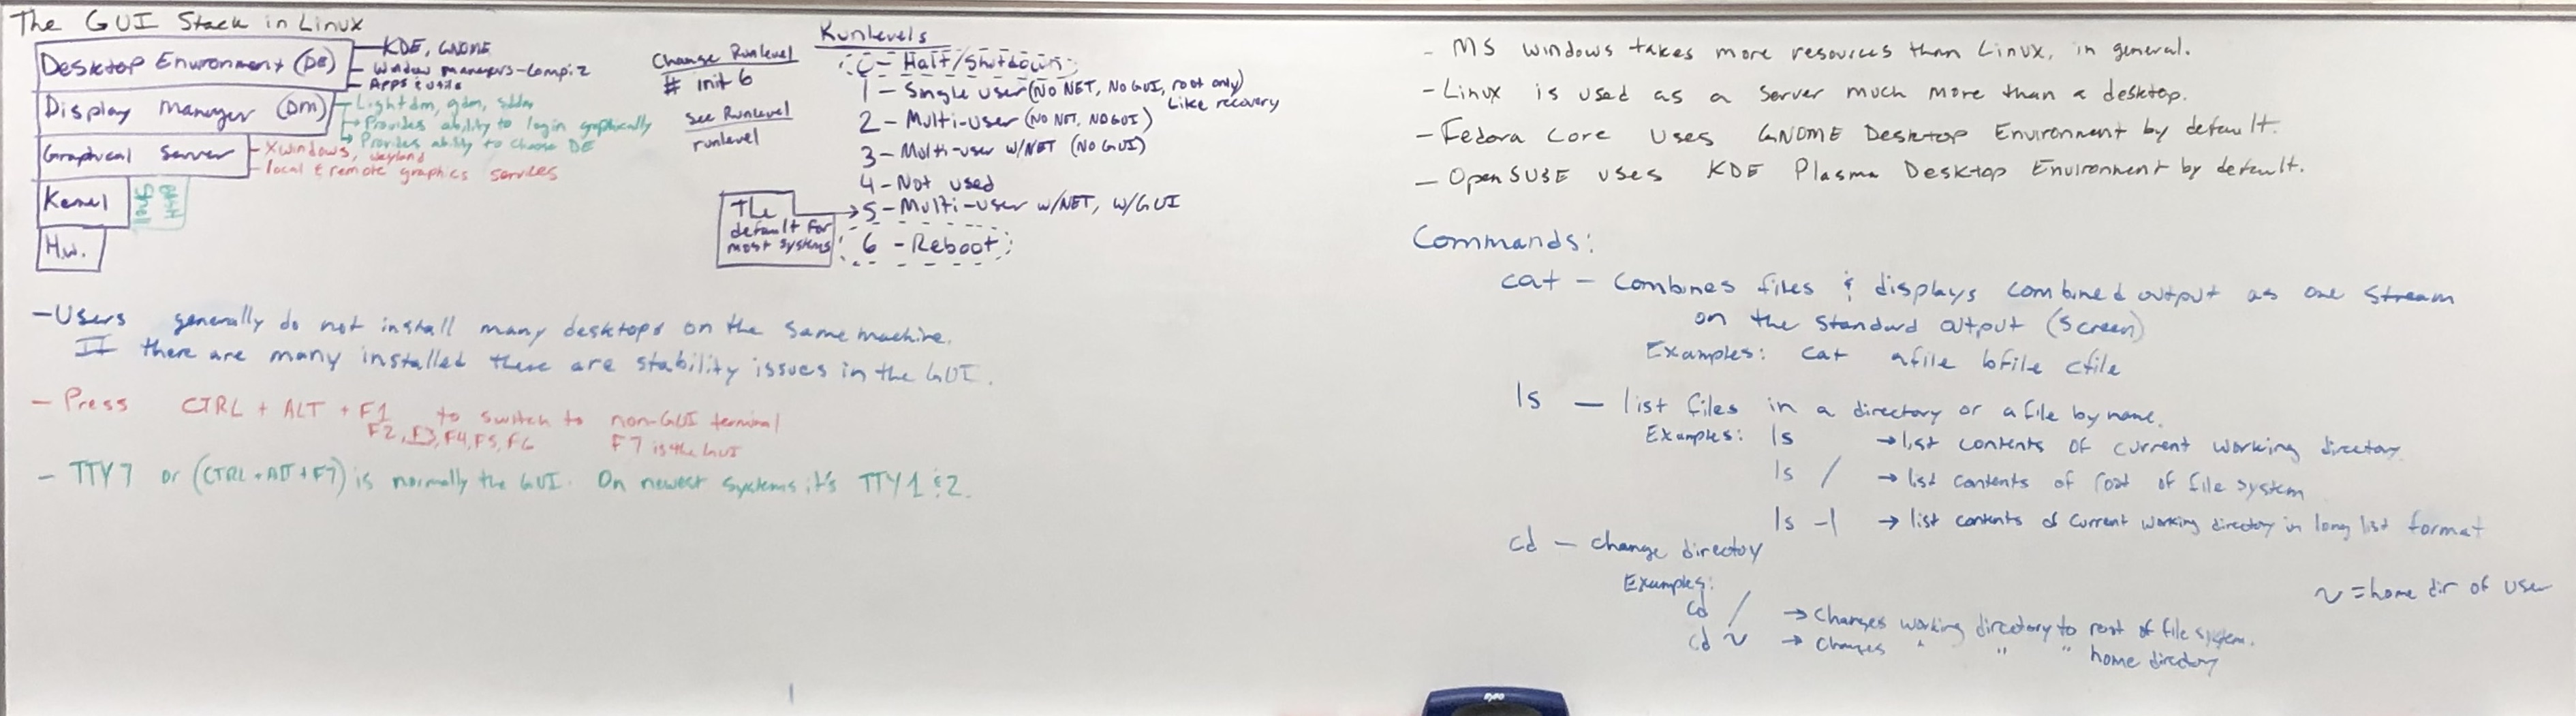 The GUI Stack in Linux
Desktop Environment (DE)
KDE, GNOME
Window managers-Compiz
Apps & utils
Display Manager (DM)
Lightdm, gdm, sddm
Provides ability to login graphically
Provides ability to choose DE
Graphical Server
Xwindows, wayland
local & remote graphics services
Kernel
Shell
BASH
H.W.
Change Runlevel
# init 6
See Runlevel
runlevel
Runlevels
0 - Halt/Shutdown
1 - Single user (NO NET, NO GUI, root only)
Like recovery
2 - Multi-user (NO NET, NO GUI)
3 - Multi-user w/NET (NO GUI)
4 - Not used
5 - Multi-user w/NET, W/GUI
6 - Reboot
The
default for
most systems
- Users generally do not install many desktops on the same machine.
If there are many installed there are stability issues in the GUI.
- Press CTRL + ALT + F1 to switch to non-GUI terminal
F2, F3, F4, F5, F6 F7 is the GUI
- TTY7 or (CTRL + ALT + F7) is normally the GUI. On newest systems it's TTY1 & 2.
- MS windows takes more resources than Linux, in general.
- Linux is used as a server much more than a desktop.
- Fedora Core uses GNOME Desktop Environment by default.
- OpenSUSE uses KDE Plasma Desktop Environment by default.
Commands:
cat - Combines files & displays combined output as one stream
on the standard output (screen)
Examples: cat afile bfile cfile
ls - list files in a directory or a file by name.
Examples: ls → list contents of current working directory
ls / → list contents of root of file system
ls -l → list contents of current working directory in long list format
cd - change directoy
Examples:
~ = home dir of user
cd / → Changes working directory to root of file system.
cd ~ → changes " " " home directory
expo